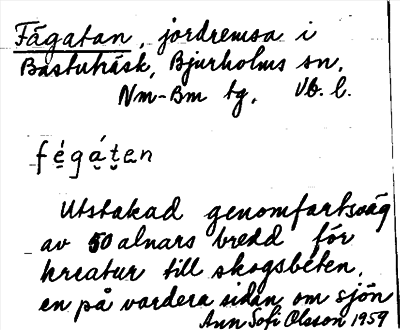 Fägatan, jordremsa i
Bastuträsk, Bjurholms sn.
Nm-Bm tg. Vb. l.
fégáten
Utstakad genomfartsväg
av 50 alnars bredd för
kreatur till skogsbéten,
en på vardera sidan om sjön
Ann Sofi Olsson 1959